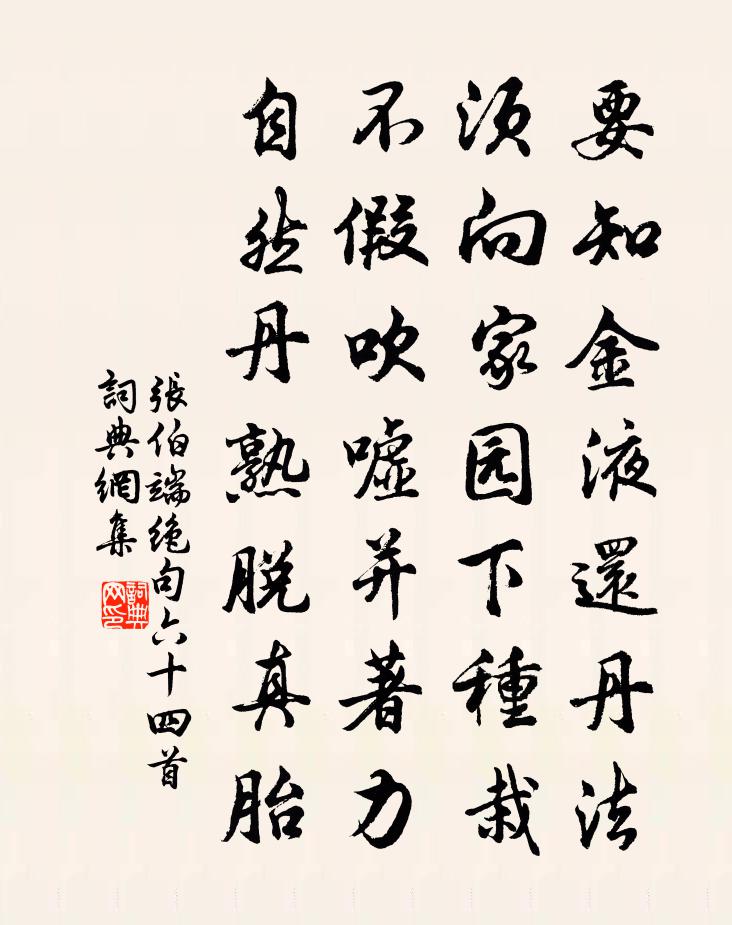 要知金液還丹法
須向家园下種栽
不假吹嘘并著力
自然丹熟脱真胎
張伯端絶句六十四首
詞典網集
詞典网印